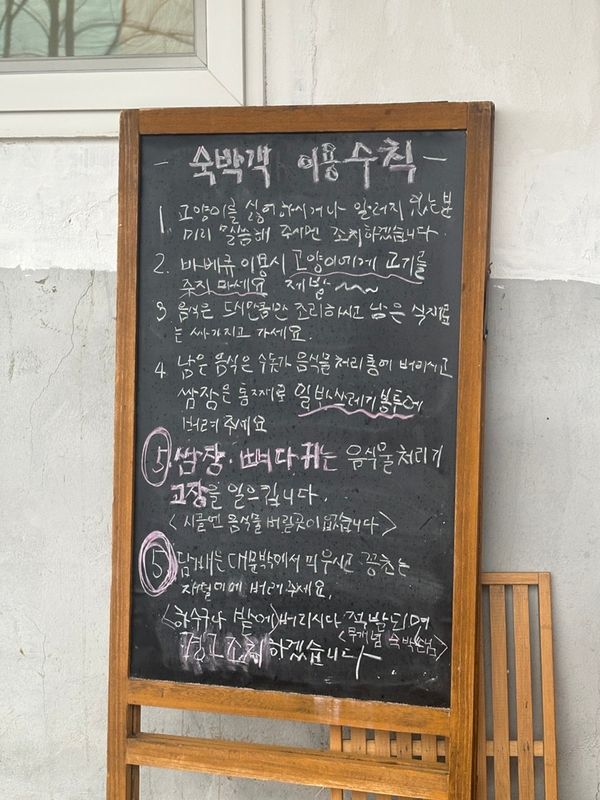 - 숙박객 이용수칙 -
1. 고양이를 싫어하시거나 알러지 있는분
미리 말씀해 주시면 조치하겠습니다.
2. 바베큐 이용시 고양이에게 고기를
주지 마세요 제발~~~
3 음식은 드시만큼만 조리하시고 남은 식재료
는 싸가지고 가세요.
4 남은 음식은 수돗가 음식물처리통에 버리시고
쌈장은 통째로 일반쓰레기봉투에
버려 주세요
5. 쌈장·뼈다귀는 음식물처리기
고장을 일으킵니다.
<시골엔 음식물버릴곳이없습니다>
5 담배는 대문밖에서 피우시고 꽁초는
재떨이에 버려주세요.
<하수구나 밭에>버리시다 적발되면
<무개념 숙박손님>
하겠습니다